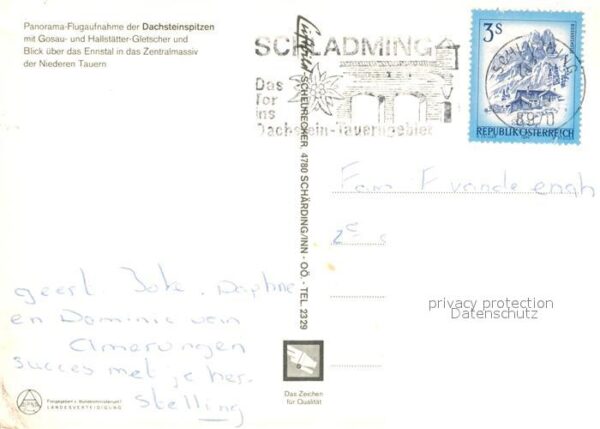 Panorama-Flugaufnahme der Dachsteinspitzen
mit Gosau- und Hallstätter-Gletscher und
Blick über das Ennstal in das Zentralmassiv
der Niederen Tauern
SCHLADMING
Das
Tor
ins
Dachstein-Tauerngebiet
3 S
8970
REPUBLIK ÖSTERREICH
Luftbild SCHEURECKER, 4780 SCHÄRDING/INN - OÖ. - TEL. 2329
Fam
2e
geert. Joke. Daphne
en Dominic van
Amerongen
succes met je her-
stelling
privacy protection
Datenschutz
Das Zeichen
für Qualität
Freigegeben v. Bundesministerium f.
LANDESVERTEIDIGUNG